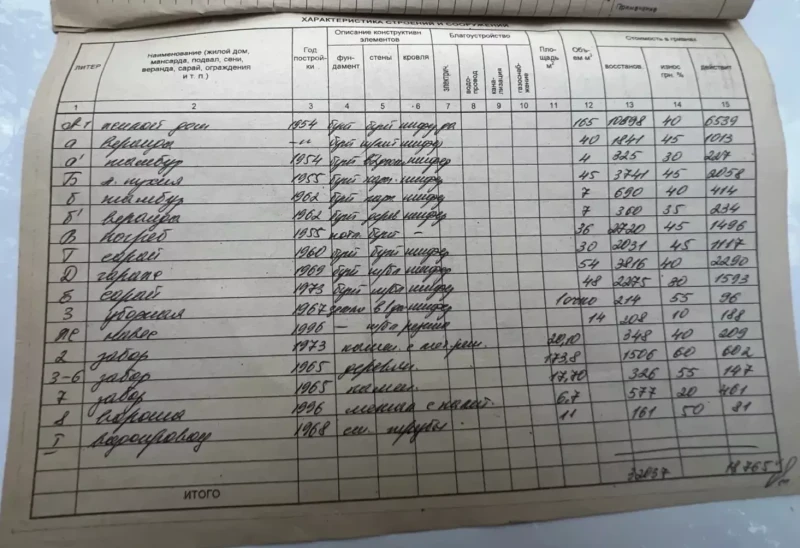 Примечание
ХАРАКТЕРИСТИКА СТРОЕНИЙ И СООРУЖЕНИЙ
ЛИТЕР Наименование (жилой дом, мансарда, подвал, сени, веранда, сарай, ограждения и т. п.) Год построй-ки Описание конструктивн элементов Благоустройство Пло-щадь м² Объ-ем м³ Стоимость в гривнах
фун-дамент стены кровля электрич. водо-провод кана-лизация газоснаб-жение восстанов. износ грн. % действит
1 2 3 4 5 6 7 8 9 10 11 12 13 14 15
А-1 жилой дом 1954 бут бут шифер да 165 10898 40 6539
а веранда -"- бут шифер 40 1841 45 1013
а' тамбур 1954 бут шифер 4 325 30 227
Б л. кухня 1955 бут шифер 45 3741 45 2058
б тамбур 1962 бут шифер 7 690 40 414
б' веранда 1962 бут дерев шифер 7 360 35 234
В погреб 1955 бут – 36 2720 45 1496
Г сарай 1960 бут бут шифер 30 2031 45 1117
Д гараж 1969 бут шифер 54 3816 40 2290
Е сарай 1973 бут шифер 48 2275 30 1593
З уборная 1967 шифер 1 очко 214 55 96
навес 1996 – 14 208 10 188
2 забор 1973 20,10 348 40 209
3-6 забор 1965 деревян. 173,8 1506 60 602
7 забор 1965 камен. 17,70 326 55 147
8 ворота 1996 металл 6,7 577 20 461
I водопровод 1968 трубы 11 161 50 81
32037 18765
ИТОГО